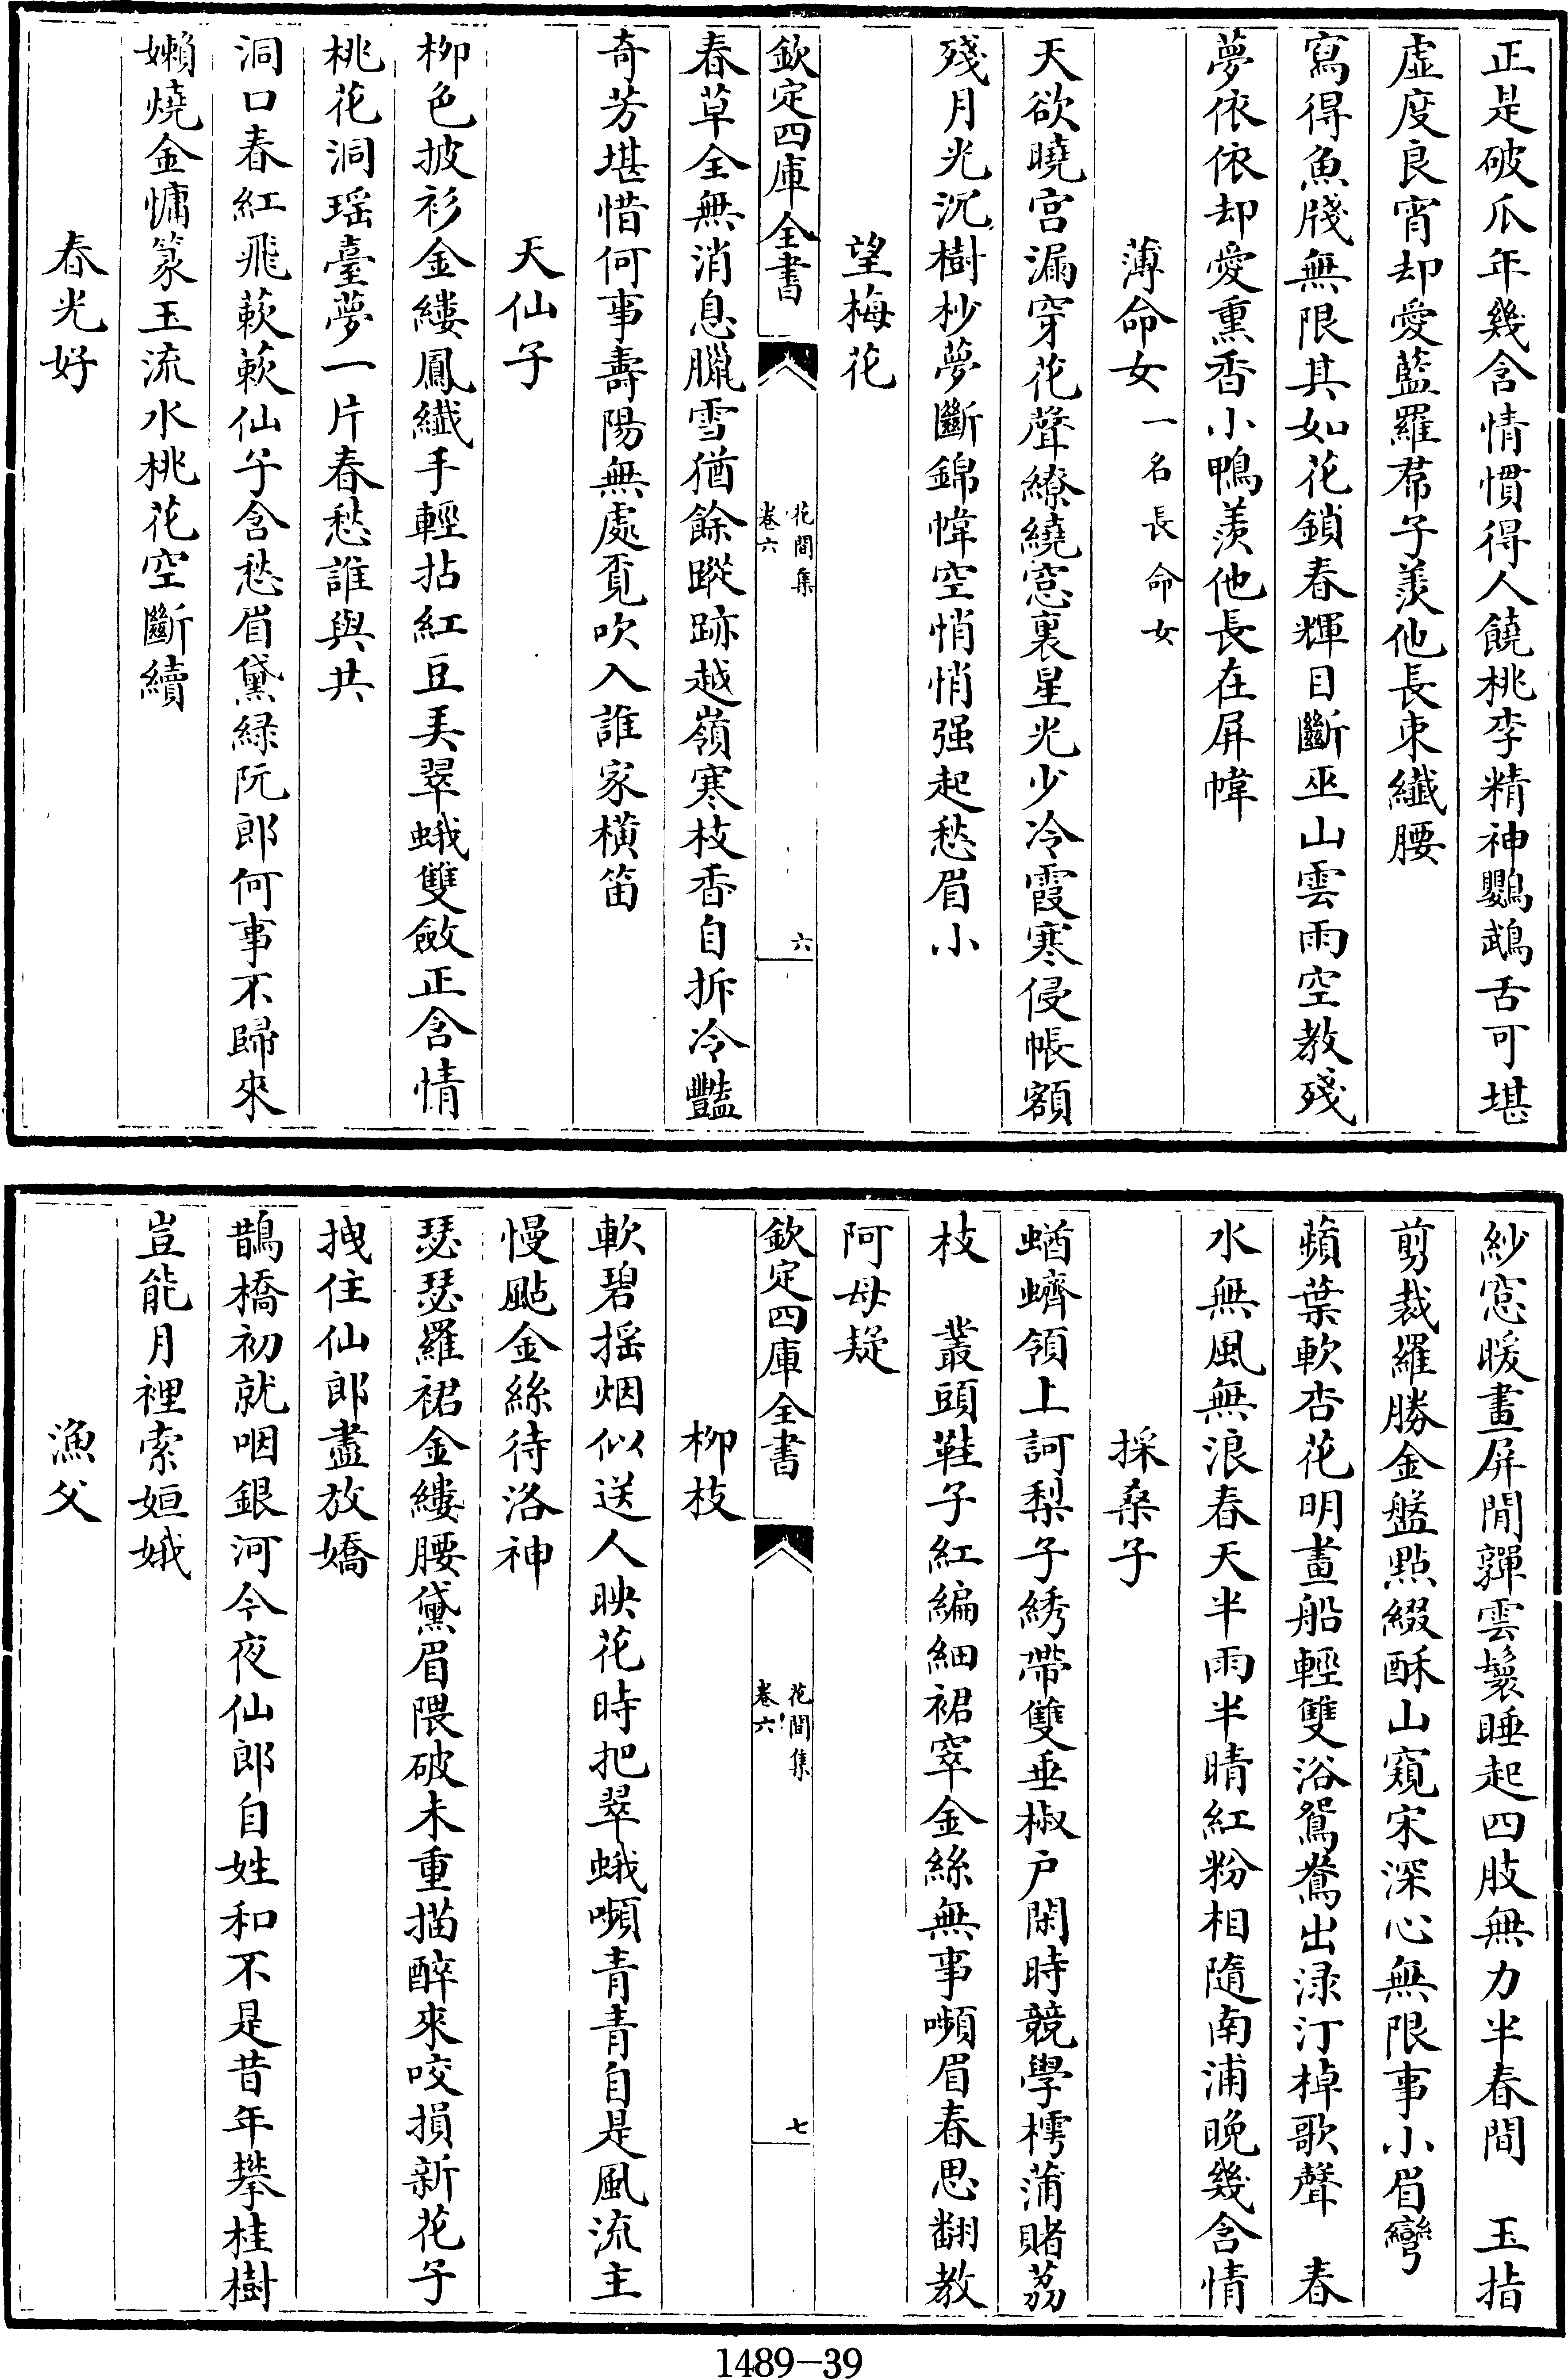 正是破瓜年幾含情慣得人饒桃李精神鸚鵡舌可堪
虛度良宵却愛藍羅帬子羡他長束纖腰
寫得魚牋無限其如花鎖春輝目斷巫山雲雨空教殘
夢依依却愛熏香小鴨羡他長在屏幃
薄命女一名長命女
天欲曉宫漏穿花聲繚繞窓裏星光少冷霞寒侵帳額
殘月光沉樹杪夢斷錦幃空悄悄强起愁眉小
望梅花
欽定四庫全書
花間集
卷六
六
春草全無消息臘雪猶餘蹤跡越嶺寒枝香自拆冷豔
奇芳堪惜何事壽陽無處覔吹入誰家横笛
天仙子
柳色披衫金縷鳳纖手輕拈紅豆弄翠蛾雙斂正含情
桃花洞瑶臺夢一片春愁誰與共
洞口春紅飛蔌蔌仙子含愁眉黛緑阮郎何事不歸來
嬾燒金慵篆玉流水桃花空斷續
春光好
紗窓暖畫屏閒嚲雲鬟睡起四肢無力半春間　玉指
剪裁羅勝金盤㸃綴酥山窺宋深心無限事小眉彎
蘋葉軟杏花明畫船輕雙浴鴛鴦出渌汀棹歌聲　春
水無風無浪春天半雨半晴紅粉相隨南浦晚幾含情
採桑子
蝤蠐領上訶梨子綉帶雙垂椒户閑時競學樗蒲賭荔
枝　叢頭鞋子紅編細裙窣金絲無事嚬眉春思翻教
阿母疑
柳枝
欽定四庫全書
花間集
卷六
七
軟碧揺烟似送人映花時把翠蛾嚬青青自是風流主
慢颭金絲待洛神
瑟瑟羅裙金縷腰黛眉隈破未重描醉來咬損新花子
拽住仙郎盡放嬌
鵲橋初就咽銀河今夜仙郎自姓和不是昔年攀桂樹
豈能月裡索姮娥
漁父
1489-39